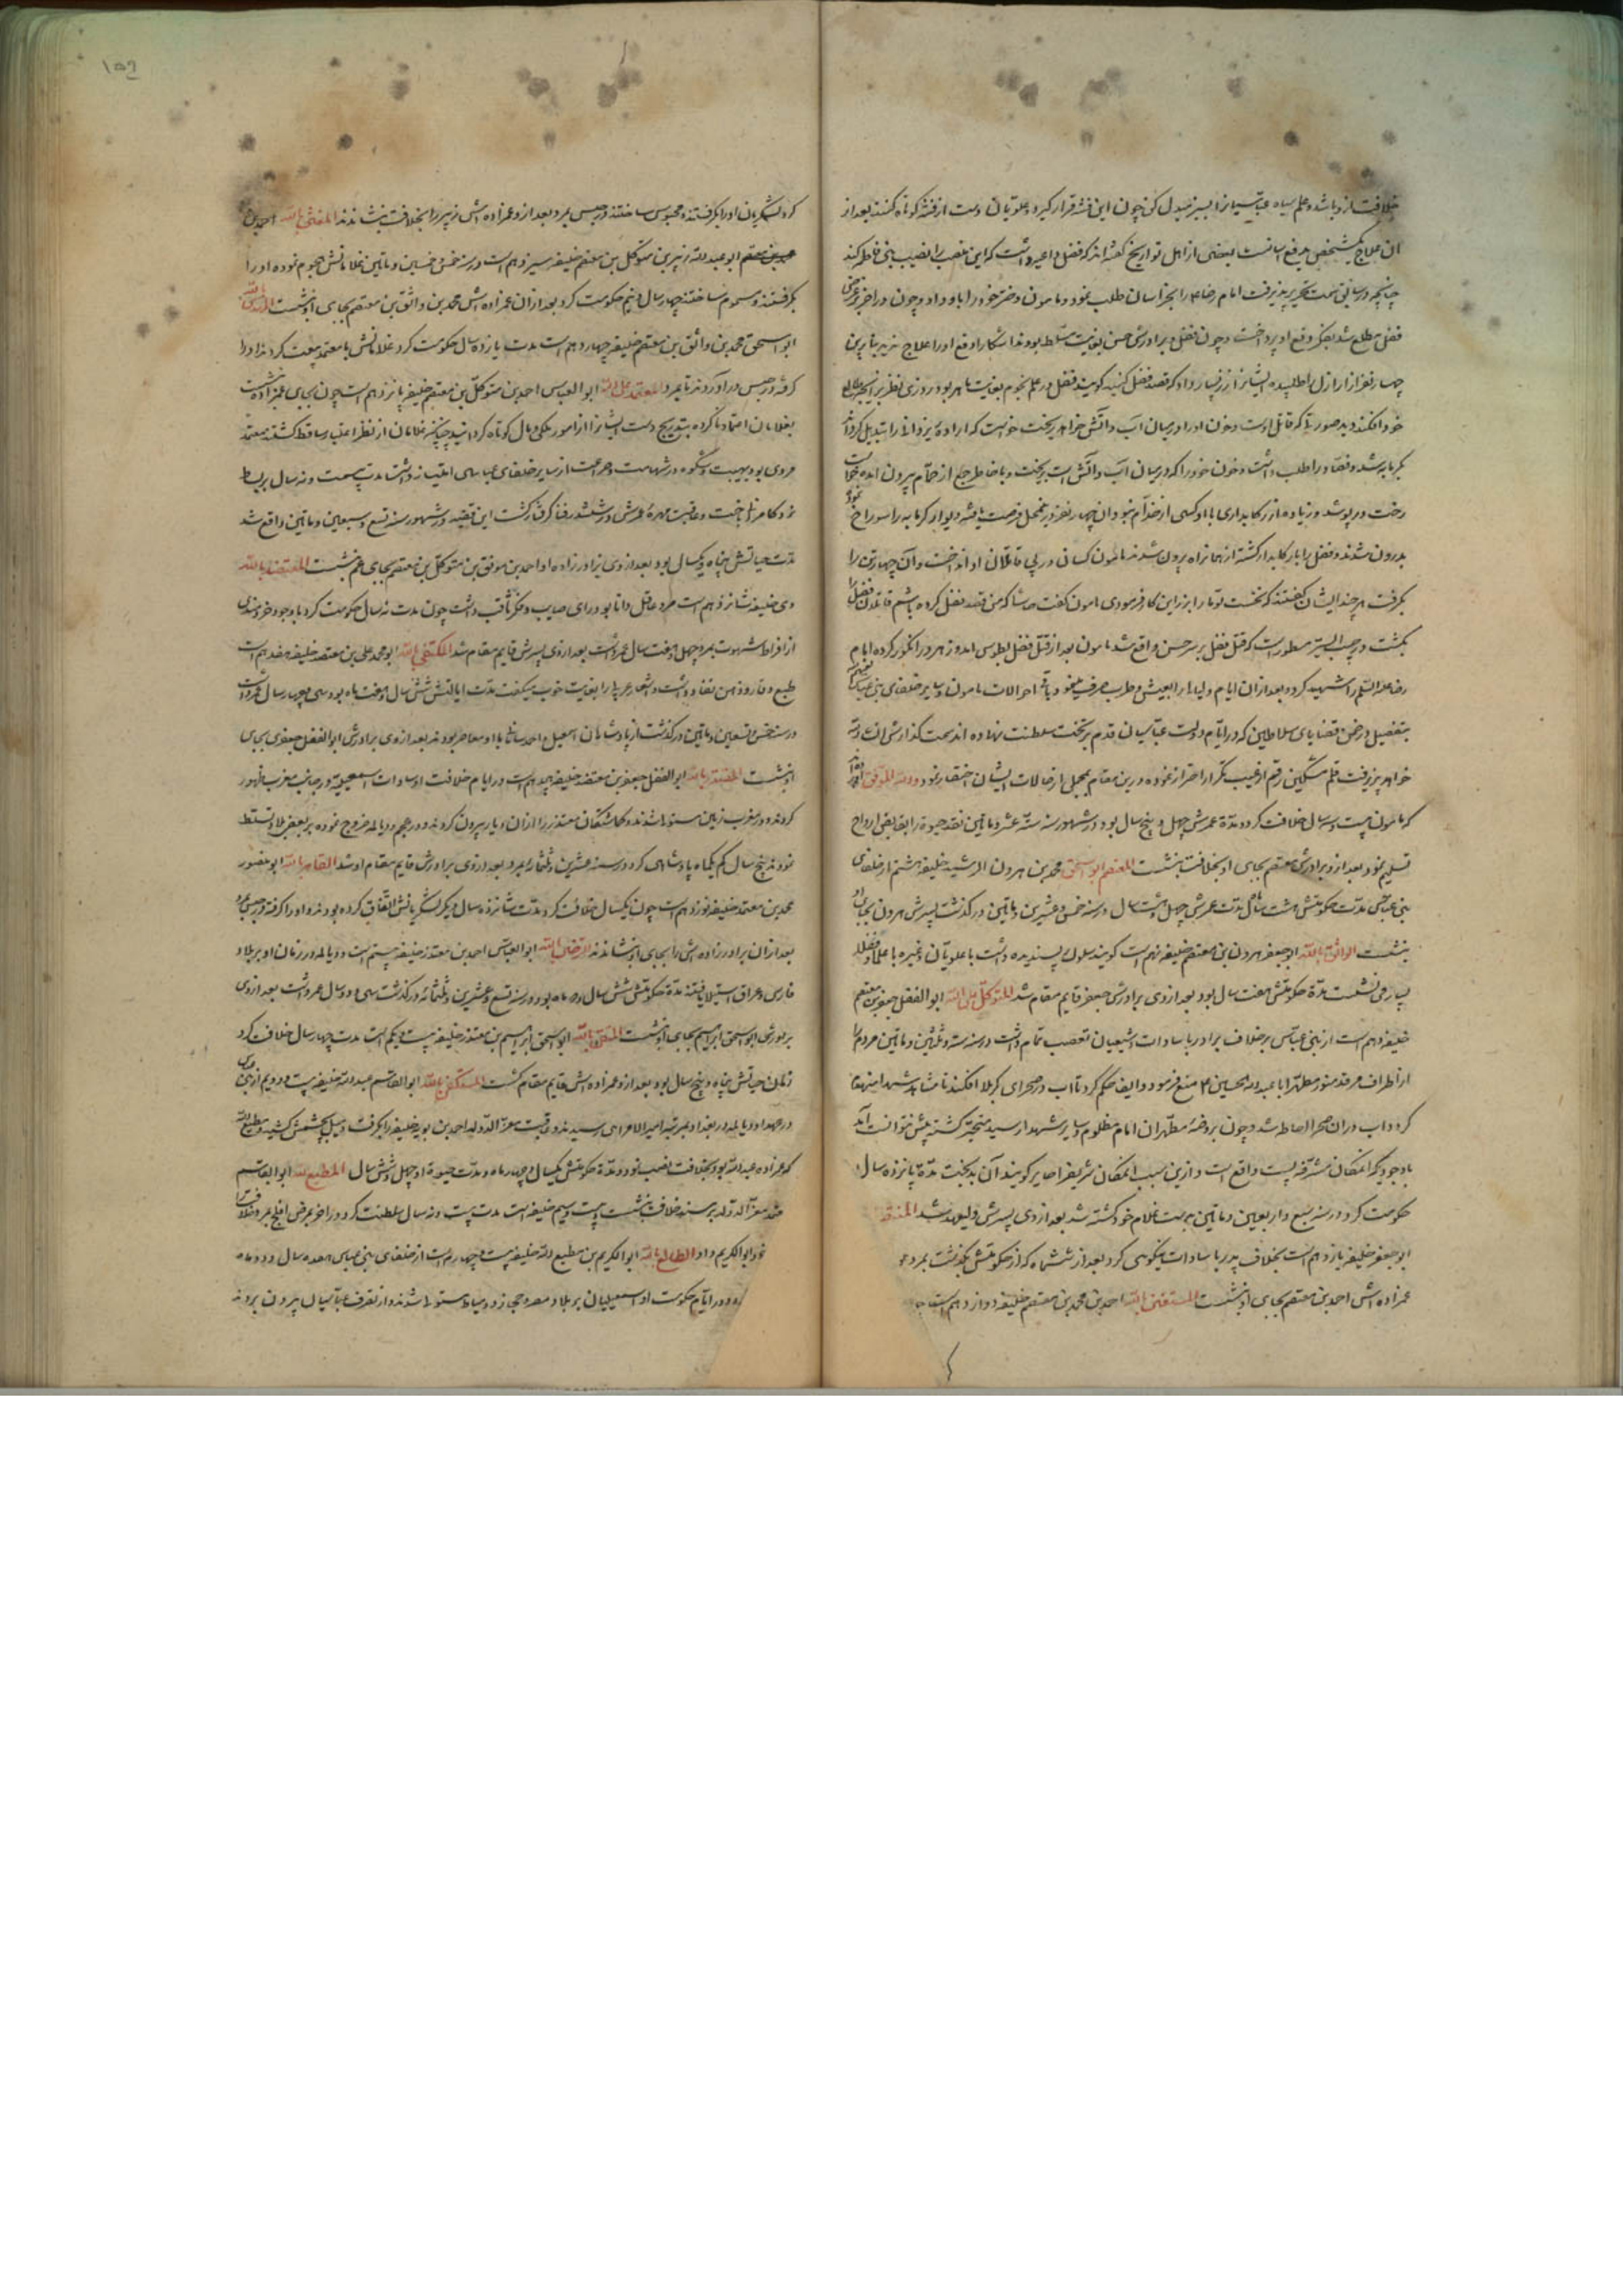 خلافت از و باشد و علم سیاه عباسیانرا بسبز مبدل کن چون این فتنه قرار گیرد و علویان دست از فتنه کوتاه کنند بعد از
ان علاج یکشخص بدفع اسانست بعضی از اهل تواریخ گفته اند که فضل داعیه داشت که این منصب را نصیب بنی فاطمه کند
چنانچه در سابق سمت تحریر پذیرفت امام رضا ع را بخراسان طلب نمود و مامون دختر خود را باو داد و چون در اخر
فضل مطلع شد بفکر دفع او پرداخت و چون فضل و برادرش حسن بغایت مسلط بودند اشکارا دفع او را علاج ندید بنابرین
چهار نفر از اراذل را طلبیده ایشانرا زر بسیار داد که قصد فضل کنید گویند فضل در علم نجوم بغایت ماهر بود روزی نظر بر
خود افکند و بد صورتی که قاتل اوست و خون او در میان آب و آتش خواهد ریخت خواست که اراده یزدانی را تبدیل
بگرمابه شد و فصاد را طلب داشت و خون خود را که در میان آب و آتش است بریخت و با خاطر جمع از حمام بیرون امده
رخت در پوشد و زیاده از رکابداری با او کسی از خدام نبود ان چهار نفر در محل فرصت یافته دیوار گرمابه را سوراخ
بدرون شدند و فضل را با رکابدار کشته از همان راه بیرون شدند مامون کسان در پی قاتلان او انداخت و آن چهار تن را
بگرفت هر چند ایشان گفتند که نخست تو ما را بر این کار فرمودی مامون گفت حاشا که من قصد فضل کرده باشم قاتلان فضل را
بکشت و در حبیب السیر مسطور است که قتل فضل بر سرخس واقع شد مامون بعد از قتل فضل بطوس امد و زهر در انگور کرده امام
رضا علیه السلم را شهید کرد و بعد از ان ایام و لیالی را بعیش و طرب صرف مینمود باقی احوالات مامون و سایر خلفای بنی عباس
بتفصیل در ضمن قضایای سلاطین که در ایام دولت عباسیان قدم بر تخت سلطنت نهاده اند سمت گذارش
خواهد پذیرفت قلم مشکین رقم از عیب تکرار احتراز نموده درین مقام بمجمل از حالات ایشان اختصار نمود و من الله التوفیق
که مامون بیست و سه سال خلافت کرد و مدة عمرش چهل و پنج سال بود و در شهور سنه ستة عشر و مأتین نقد حیوة را بقابض ارواح
تسلیم نمود بعد از و برادرش معتصم بجای او بخلافت بنشست المعتصم ابو اسحق محمد بن هرون الرشید خلیفه هشتم از خلفای
بنی عباس مدت حکومتش هشت سال مدت عمرش چهل و هشت سال در سنه خمس و عشرین و مأتین درگذشت پسرش هرون بجای او
بنشست الواثق بالله ابو جعفر هرون بن معتصم خلیفه نهم است گویند سلوک پسندیده داشت با علویان و غیره با علما و فضلا
بسیار می نشست مدة حکومتش هفت سال بود بعد از وی برادرش جعفر قایم مقام شد المتوکل علی الله ابو الفضل جعفر بن معتصم
خلیفه دهم است از بنی عباس بر خلاف برادر با سادات و شیعیان تعصب تمام داشت در سنه ستة و ثلثین و مأتین مردم را
از اطراف مرقد منور مطهر ابا عبدالله الحسین ع منع فرمود و ایضا حکم کرد تا اب در صحرای کربلا افکندند تا مشاهد شهدا منهدم
کرد و اب در ان صحرا احاطه شد و چون بروضه مطهر ان امام مظلوم و سایر شهدا رسید متحیر گشته پیش نتوانست آمد
با وجودیکه امکان مشرفه پست واقع است و ازین سبب امکان شریفرا حایر گویند آن بدبخت مدة پانزده سال
حکومت کرد و در سنه سبع و اربعین و مأتین بدست غلام خود کشته شد بعد از وی پسرش ولیعهد شد المنتصر
ابو جعفر خلیفه یازدهم است بخلاف پدر با سادات نیکویی کرد بعد از ششماه که از حکومتش بگذشت بمرد و
عمزاده اش احمد بن معتصم بجای او بنشست المستعین بالله احمد بن محمد بن معتصم خلیفه دوازدهم است
کرد لشکریان او را بگرفتند و محبوس ساختند در حبس بمرد بعد از و عمزاده اش زبیر را بخلافت بنشاندند المعتز بالله احمد بن
ابو عبدالله زبیر بن متوکل بن معتصم خلیفه سیزدهم است در سنه خمس و خمسین و مأتین غلامانش هجوم نموده او را
بگرفتند و مسموم ساختند چهار سال و نیم حکومت کرد بعد از ان عمزاده اش محمد بن واثق بن معتصم بجای او بنشست المهتدی بالله
ابو اسحق محمد بن واثق بن معتصم خلیفه چهاردهم است مدت یازده سال حکومت کرد غلامانش با معتمد بیعت کردند او را
گرفته در حبس در آوردند تا بمرد المعتمد علی الله ابو العباس احمد بن متوکل بن معتصم خلیفه پانزدهم است چون بجای عمزاده نشست
بغلامان اعتماد ناکرده بتدریج دست ایشانرا از امور ملکی و مال کوتاه گردانید چنانکه غلامان از نظر اعتبار ساقط گشتند معتمد
مردی بود بهیبت و شکوه در شهامت و جرات از سایر خلفای عباسی امتیاز داشت مدت بیست و نه سال بر بساط
نرد کامرانی باخت و عاقبت مهره عمرش در ششدر فنا گرفتار گشت این قضیه در شهور سنه تسع و سبعین و مأتین واقع شد
مدت حیاتش پنجاه و یکسال بود بعد از وی برادرزاده او احمد بن موفق بن متوکل بن معتصم بجای عم بنشست المعتضد بالله
وی خلیفه شانزدهم است مرد عاقل و دانا بود و رای صایب و فکر ثاقب داشت چون مدت نه سال حکومت کرد با وجود خردمندی
از افراط شهوت بمرد چهل و هفت سال عمر داشت بعد از وی پسرش قایم مقام شد المکتفی بالله ابو محمد علی بن معتضد خلیفه هفدهم است
طبع وقاد و ذهن نقاد داشت و شعار عربی را بغایت خوب میگفت مدت ایالتش شش سال و هفت ماه بود سی و چهار سال عمر داشت
در سنه خمس و تسعین و مأتین درگذشت از پادشاهان اسمعیل و احمد سامانی با او معاصر بودند بعد از وی برادرش ابو الفضل جعفر بجای
او نشست المقتدر بالله ابو الفضل جعفر بن معتضد خلیفه هجدهم است در ایام خلافت او سادات اسمعیلیه در جانب مغرب ظهور
کردند و در مغرب زمین مستولی شدند و گماشتگان مقتدر را از ان دیار بیرون کردند و در عجم دیالمه خروج نموده بر بعضی بلاد تسلط
نمودند پنج سال کم یکماه پادشاهی کرد در سنه عشرین و ثلثمائه بمرد بعد از وی برادرش قایم مقام او شد القاهر بالله ابو منصور
محمد بن معتضد خلیفه نوزدهم است چون یکسال خلافت کرد بمدت شانزده سال دیگر لشکریانش اتفاق کرده بودند و او را گرفته
بعد از ان برادرزاده اش را بجای او نشاندند الراضی بالله ابو العباس احمد بن مقتدر خلیفه بیستم است و دیالمه در زمان او بر بلاد
فارس و عراق استیلا یافتند مدة حکومتش شش سال و ده ماه بود و در سنه تسع و عشرین و ثلثمائه درگذشت سی و دو سال عمر داشت بعد از وی
برادرش ابو اسحق ابراهیم بجای او نشست المتقی بالله ابو اسحق ابراهیم بن مقتدر خلیفه بیست و یکم است مدت چهار سال خلافت کرد
زمان حیاتش پنجاه و پنج سال بود بعد از و عمزاده اش قایم مقام گشت المستکفی بالله ابو القاسم عبدالله خلیفه بیست و دویم از بنی عباس
در عهد او دیالمه در بغداد بمرتبه امیر الامرایی رسیدند و عاقبت معز الدوله احمد بن بویه خلیفه را بگرفت و میل بچشمش کشید و مطیع لله
که عمزاده عبدالله بود بخلافت نصب نمود و مدة حکومتش یکسال و چهار ماه و مدت حیوة او چهل و شش سال المطیع لله ابو القاسم
معز الدوله بر مسند خلافت بنشست و بیست و سیم خلیفه است مدت بیست و نه سال سلطنت کرد و در اخر بمرض افلیج مرد و خلافت را
خود ابو الکریم داد الطایع بالله ابو الکریم بن مطیع لله خلیفه بیست و چهارم است از خلفای بنی عباس هفده سال و دو ماه
و در ایام حکومت او اسمعیلیان بر بلاد مصر و حجاز و دمیاط مستولی شدند و از تصرف عباسیان بیرون بردند